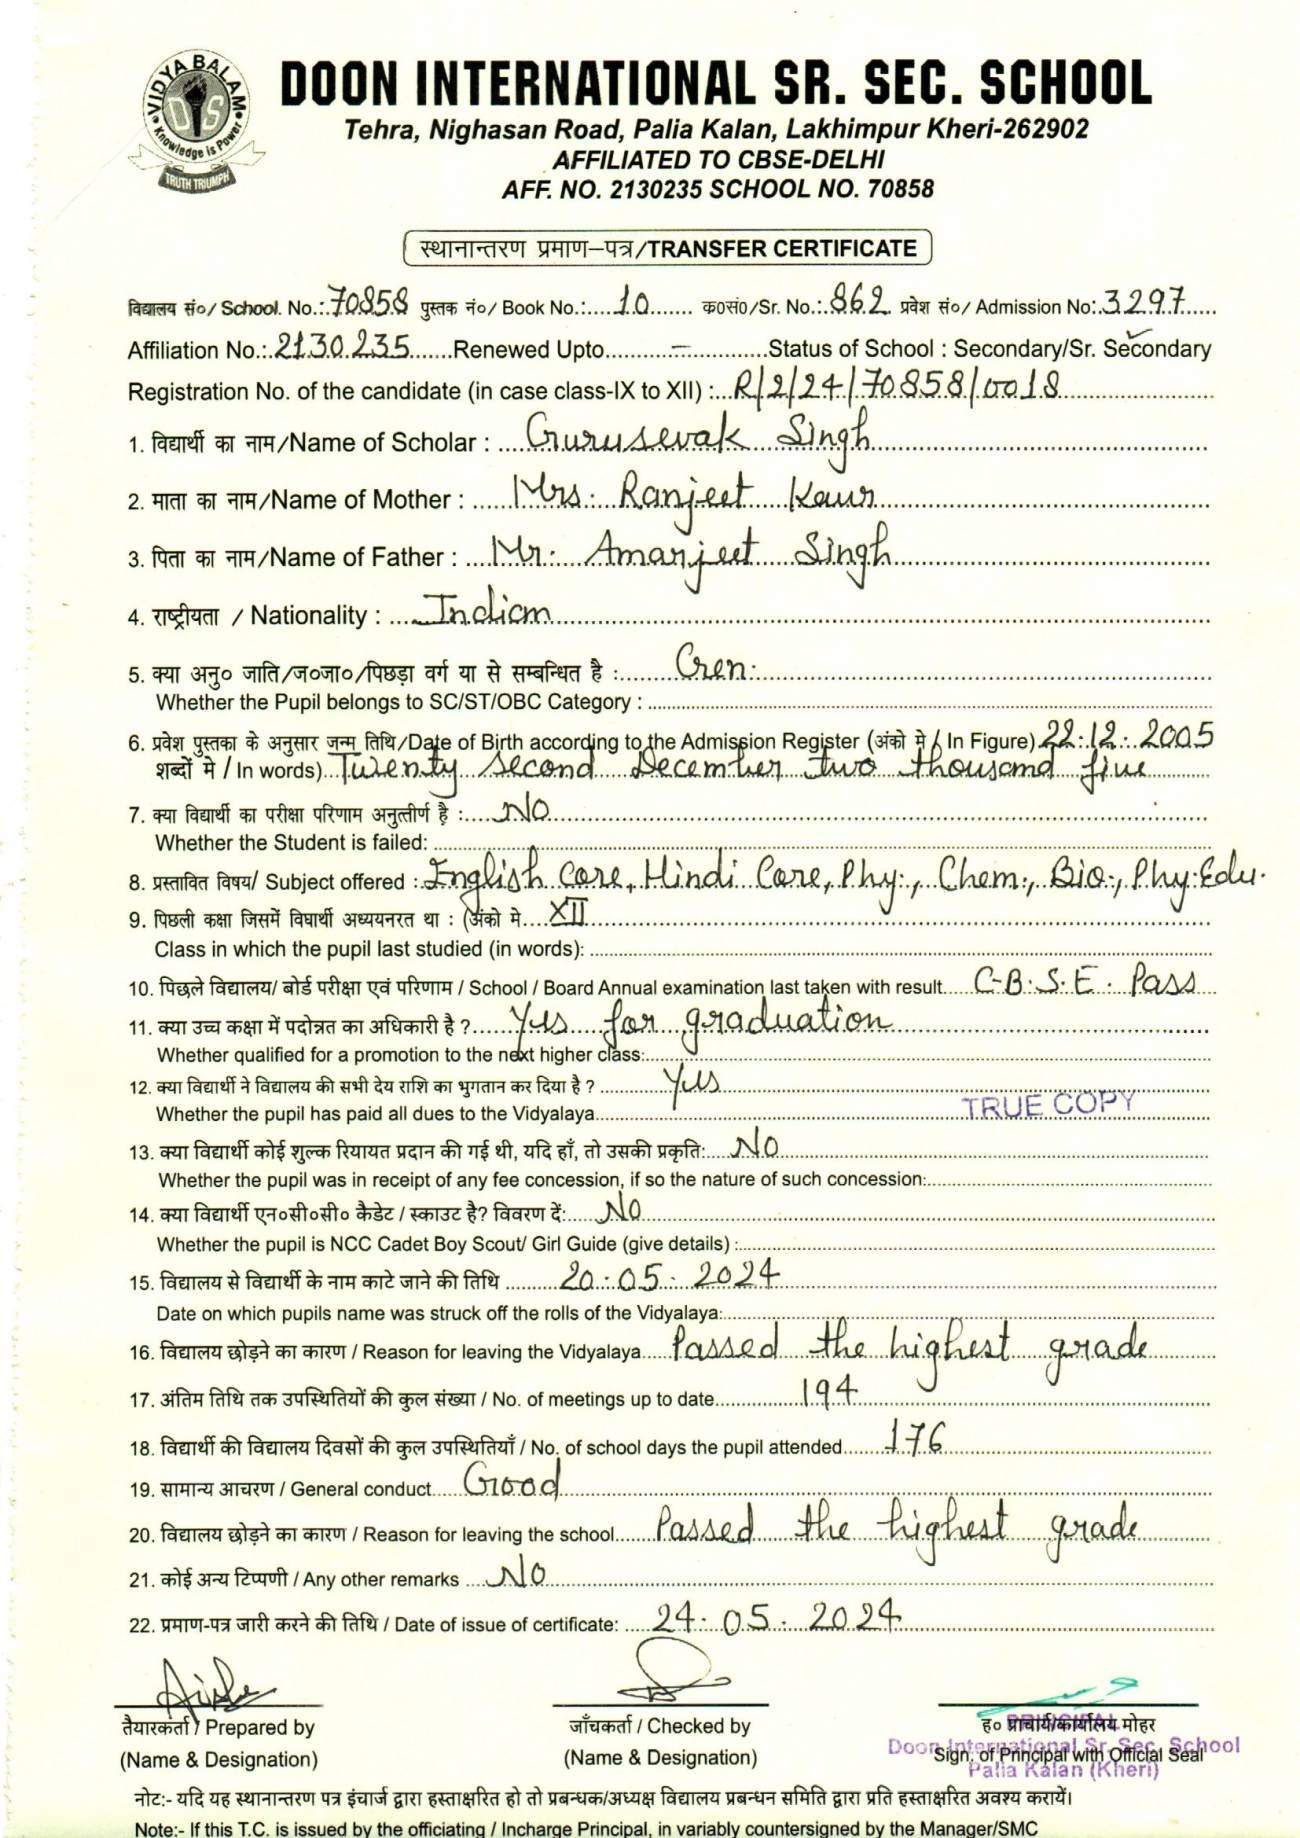 VIDYA BALAM
DIS
Knowledge is Power
TRUTH TRIUMPH
DOON INTERNATIONAL SR. SEC. SCHOOL
Tehra, Nighasan Road, Palia Kalan, Lakhimpur Kheri-262902
AFFILIATED TO CBSE-DELHI
AFF. NO. 2130235 SCHOOL NO. 70858
स्थानान्तरण प्रमाण–पत्र/TRANSFER CERTIFICATE
विद्यालय सं०/ School. No.: 70858 पुस्तक नं०/ Book No.: 10 क०सं०/Sr. No.: 862 प्रवेश सं०/ Admission No: 3297
Affiliation No.: 2130235 Renewed Upto – Status of School : Secondary/Sr. Secondary
Registration No. of the candidate (in case class-IX to XII) : R/2/24/70858/0018
1. विद्यार्थी का नाम/Name of Scholar : Gurusevak Singh
2. माता का नाम/Name of Mother : Mrs. Ranjeet Kaur
3. पिता का नाम/Name of Father : Mr. Amarjeet Singh
4. राष्ट्रीयता / Nationality : Indian
5. क्या अनु० जाति/ज०जा०/पिछड़ा वर्ग या से सम्बन्धित है : Gen.
Whether the Pupil belongs to SC/ST/OBC Category :
6. प्रवेश पुस्तका के अनुसार जन्म तिथि/Date of Birth according to the Admission Register (अंको मे / In Figure) 22.12.2005
शब्दों मे / In words) Twenty second December two thousand five
7. क्या विद्यार्थी का परीक्षा परिणाम अनुत्तीर्ण है : No
Whether the Student is failed:
8. प्रस्तावित विषय/ Subject offered : English core, Hindi Core, Phy., Chem., Bio., Phy.Edu.
9. पिछली कक्षा जिसमें विघार्थी अध्ययनरत था : (अंको मे XII
Class in which the pupil last studied (in words):
10. पिछले विद्यालय/ बोर्ड परीक्षा एवं परिणाम / School / Board Annual examination last taken with result C.B.S.E. Pass
11. क्या उच्च कक्षा में पदोन्नत का अधिकारी है ? Yes for graduation
Whether qualified for a promotion to the next higher class:
12. क्या विद्यार्थी ने विद्यालय की सभी देय राशि का भुगतान कर दिया है ? Yes
Whether the pupil has paid all dues to the Vidyalaya
TRUE COPY
13. क्या विद्यार्थी कोई शुल्क रियायत प्रदान की गई थी, यदि हाँ, तो उसकी प्रकृति: No
Whether the pupil was in receipt of any fee concession, if so the nature of such concession:
14. क्या विद्यार्थी एन०सी०सी० कैडेट / स्काउट है? विवरण दें: No
Whether the pupil is NCC Cadet Boy Scout/ Girl Guide (give details) :
15. विद्यालय से विद्यार्थी के नाम काटे जाने की तिथि 20.05.2024
Date on which pupils name was struck off the rolls of the Vidyalaya:
16. विद्यालय छोड़ने का कारण / Reason for leaving the Vidyalaya Passed the highest grade
17. अंतिम तिथि तक उपस्थितियों की कुल संख्या / No. of meetings up to date 194
18. विद्यार्थी की विद्यालय दिवसों की कुल उपस्थितियाँ / No. of school days the pupil attended 176
19. सामान्य आचरण / General conduct Good
20. विद्यालय छोड़ने का कारण / Reason for leaving the school Passed the highest grade
21. कोई अन्य टिप्पणी / Any other remarks No
22. प्रमाण-पत्र जारी करने की तिथि / Date of issue of certificate: 24.05.2024
तैयारकर्ता / Prepared by जाँचकर्ता / Checked by ह० प्राचार्य/कार्यालय मोहर
(Name & Designation) (Name & Designation) Sign. of Principal with Official Seal
PRINCIPAL
Doon International Sr. Sec. School
Palia Kalan (Kheri)
नोट:- यदि यह स्थानान्तरण पत्र इंचार्ज द्वारा हस्ताक्षरित हो तो प्रबन्धक/अध्यक्ष विद्यालय प्रबन्धन समिति द्वारा प्रति हस्ताक्षरित अवश्य करायें।
Note:- If this T.C. is issued by the officiating / Incharge Principal, in variably countersigned by the Manager/SMC